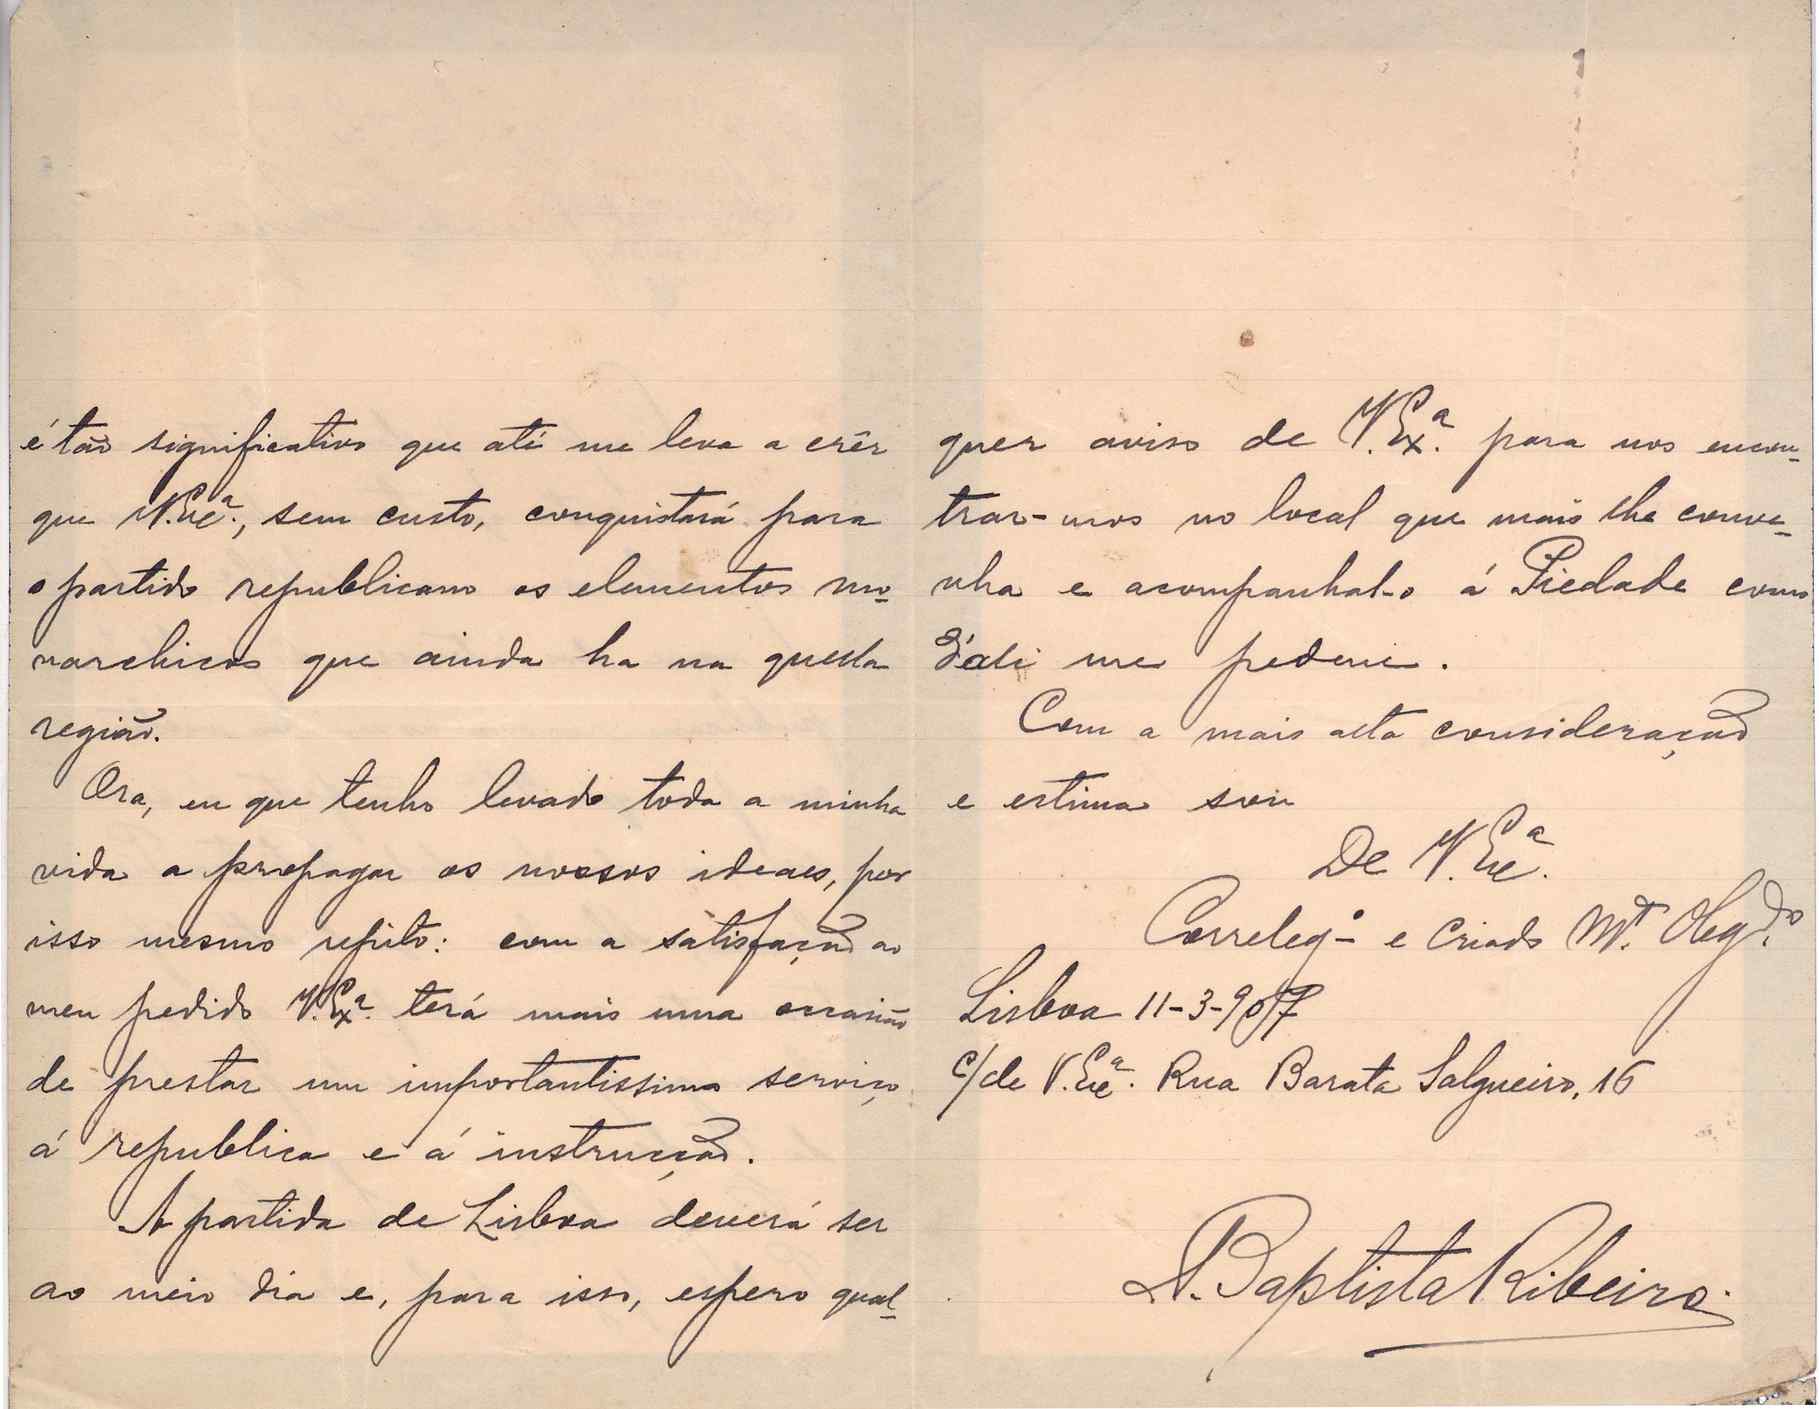 é tão significativo que até me leva a crêr
que V. Exc.ª, sem custo, conquistará para
o partido republicano os elementos mo-
narchicos que ainda ha na quella
região.
Ora, eu que tenho levado toda a minha
vida a propagar os nossos ideaes, por
isso mesmo repito: com a satisfação ao
meu pedido V. Ex.ª terá mais uma occasião
de prestar um importantissimo serviço
á republica e á instrucção.
A partida de Lisboa deverá ser
ao meio dia e, para isso, espero qual-
quer aviso de V. Ex.ª para nos encon-
trar-mos no local que mais lhe conve-
nha e acompanhal-o á Piedade como
d'ali me pedem.
Com a mais alta consideração
e estima sou
De V. Exc.ª
Correleg.º e criado M.to Obgdo.
Lisboa 11-3-907
c/de V. Exc.ª Rua Barata Salgueiro, 16
A. Baptista Ribeiro.